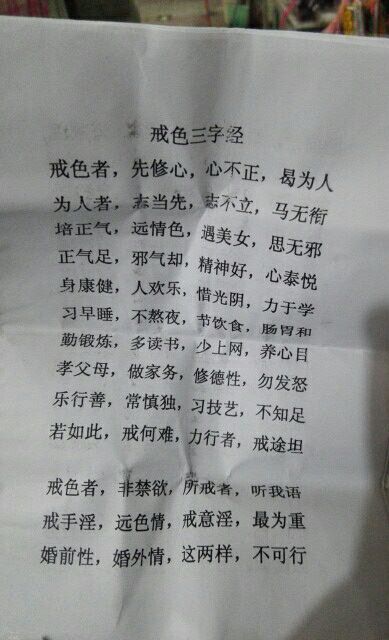 戒色三字经
戒色者，先修心，心不正，曷为人
为人者，志当先，志不立，马无衔
培正气，远情色，遇美女，思无邪
正气足，邪气却，精神好，心泰悦
身康健，人欢乐，惜光阴，力于学
习早睡，不熬夜，节饮食，肠胃和
勤锻炼，多读书，少上网，养心目
孝父母，做家务，修德性，勿发怒
乐行善，常慎独，习技艺，不知足
若如此，戒何难，力行者，戒途坦
戒色者，非禁欲，所戒者，听我语
戒手淫，远色情，戒意淫，最为重
婚前性，婚外情，这两样，不可行